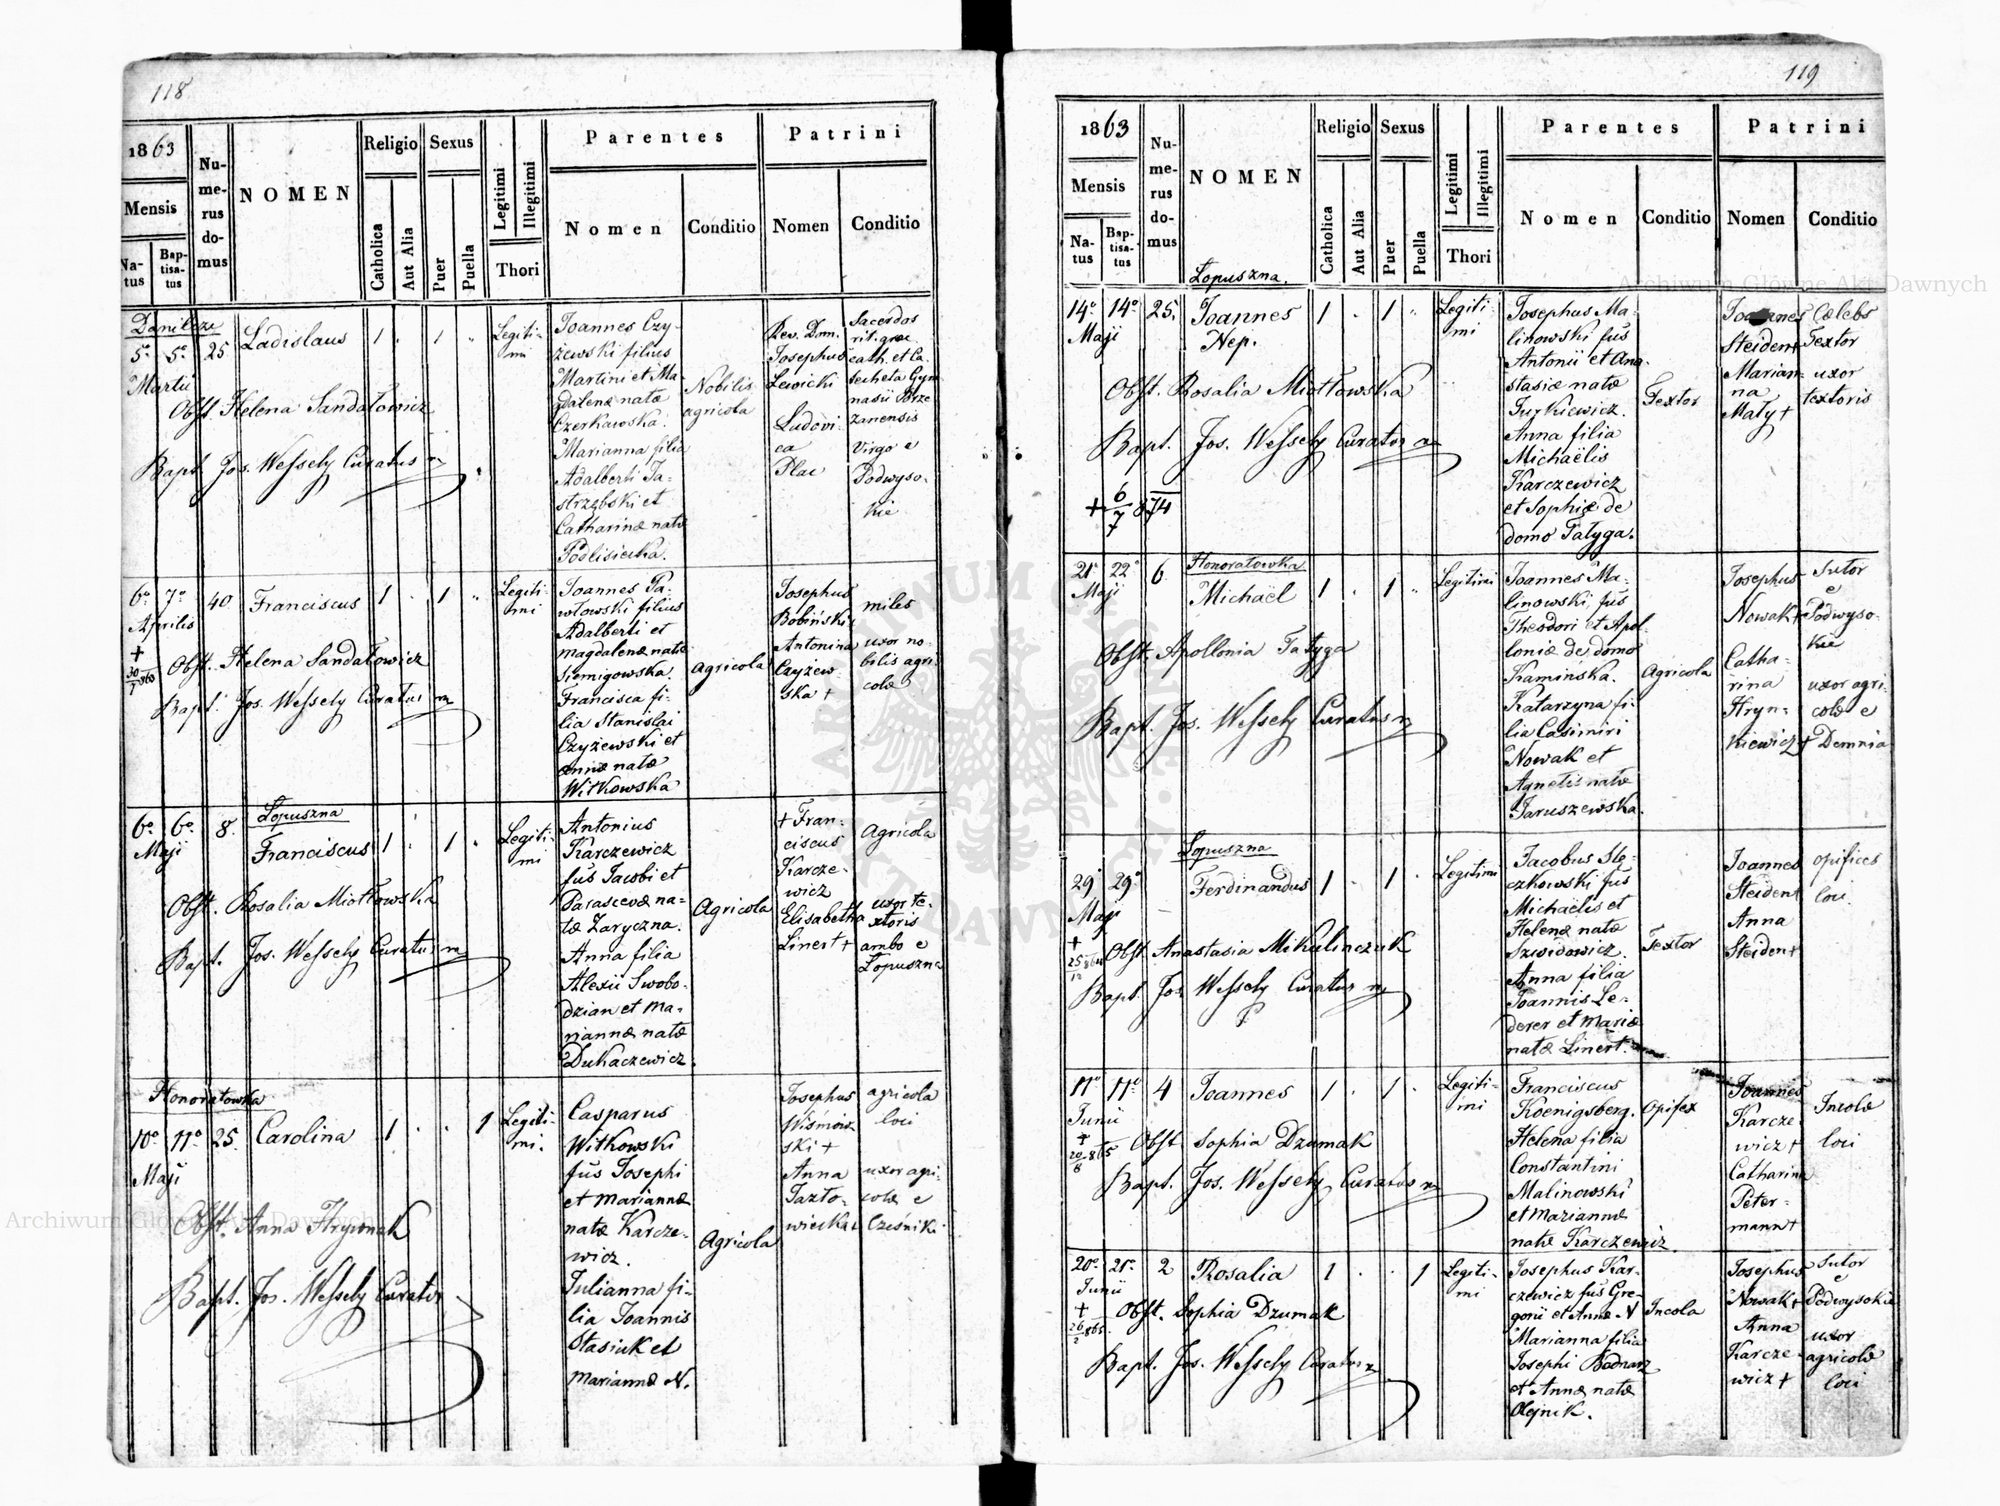 118
1863
Mensis
Natus
Baptisatus
Numerus domus
NOMEN
Religio
Catholica
Aut Alia
Sexus
Puer
Puella
Legitimi
Illegitimi
Thori
Parentes
Nomen
Conditio
Patrini
Nomen
Conditio
5º 5º 25
Martii
Ladislaus
1 . 1 "
Legiti-
mi
Obst. Helena Sandałowicz
Bapt. Jos. Wessely Curatus
Joannes Czy-
żewski filius
Martini et Ma-
gdalenæ natæ
Czerkawska.
Marianna filia
Adalberti Ja-
strzębski et
Catharinæ natæ
Nobilis
agricola
Rev. Dnn.
Josephus
Lewicki
Ludovi-
ca
Sacerdos
rit. græ
cath. et Ca-
techeta Gym
nasii Brze
zanensis
Virgo e
Podwyso-
kie
6º 7º 40
Aprilis
Franciscus
1 . 1 "
Legiti-
mi
+
Obst. Helena Sandałowicz
Bapt. Jos. Wessely Curatus
Joannes Pa-
włowski filius
Adalberti et
Magdalenæ natæ
Siemigowska.
Francisca fi-
lia Stanislai
Czyżewski et
Annæ natæ
Witkowska
agricola
Josephus
Bobiński
Antonina
Czyżew
ska +
miles
uxor no-
bilis agri-
colæ
Łopuszna
6º 6º 8.
Maji
Franciscus
1 . 1 "
Legiti-
mi
Obst. Rosalia Miotłowska
Bapt. Jos. Wessely Curatus
Antonius
Karczewicz
fus Jacobi et
Parascevæ na-
tæ Zaryczna.
Anna filia
Alexii Swobo-
dzian et Ma-
riannæ natæ
Dukaczewicz.
Agricola
+ Fran-
ciscus
Karcze-
wicz
Elisabetha
Linert +
Agricola
uxor te-
xtoris
ambo e
Łopuszna
Honoratowka
10º 11º 25.
Maji
Carolina
1 . . 1
Legiti-
mi.
Obst. Anna Hrywnak
Bapt. Jos. Wessely Curatus
Casparus
Witkowski
fus Josephi
et Mariannæ
natæ Karcze-
wicz.
Julianna fi-
lia Joannis
Stasiuk et
Mariannæ N.
Agricola
Josephus
Wiśniow
ski +
Anna
agricola
loci
uxor agri-
colæ e
119
1863
Mensis
Natus
Baptisatus
Numerus domus
NOMEN
Religio
Catholica
Aut Alia
Sexus
Puer
Puella
Legitimi
Illegitimi
Thori
Parentes
Nomen
Conditio
Patrini
Nomen
Conditio
Łopuszna.
14º 14º 25.
Maji
Joannes
Nep.
1 . 1 "
Legiti-
mi
Obst. Rosalia Miotłowska
Bapt. Jos. Wessely Curatus
+ 6/7 874
Josephus Ma-
linowski fus
Antonii et Ana-
stasiæ natæ
Jurkiewicz.
Anna filia
Michaëlis
Karczewicz
et Sophiæ de
domo Tatyga.
Textor
Joannes
Steident
Marian-
na
Maty +
Cælebs
Textor
uxor
textoris
Honoratowka
21º 22º 6
Maji
Michaël
1 . 1 "
Legitimi
Obst. Apollonia Tatyga
Bapt. Jos. Wessely Curatus
Joannes Ma-
linowski, fus
Theodori et Apol-
loniæ de domo
Kamińska.
Katarzyna fi-
lia Casimiri
Nowak et
Agnetis natæ
Jaruszewska.
Agricola
Josephus
Nowak +
Catha-
rina
Hryn-
kiewicz +
Sutor
e
Podwyso-
kie
uxor agri-
colæ e
Demnia
Łopuszna
29º 29º
Maji
Ferdinandus
1 . 1 .
Legitimi
+
Obst. Anastasia Mikulinczuk
Bapt. Jos. Wessely Curatus
Jacobus Slę-
czkowski fus
Michaëlis et
Helenæ natæ
Szwidowicz.
Anna filia
Joannis Le-
derer et Mariæ
natæ Linert.
Textor
Joannes
Steident
Anna
Steident
opifices
loci.
11º 11º 4
Junii
Joannes
1 . 1 .
Legiti-
mi
+
Obst. Sophia Dzumak
Bapt. Jos. Wessely Curatus
Franciscus
Koenigsberg.
Helena filia
Constantini
Malinowski
et Mariannæ
natæ Karczewicz.
Opifex
Joannes
Karcze
wicz +
Catharina
Peter-
mann +
Incolæ
loci
20º 21º 2
Junii
Rosalia
1 . . 1
Legiti-
mi
+
Obst. Sophia Dzumak
Bapt. Jos. Wessely Curatus
Josephus Kar-
czewicz fus Gre-
gorii et Annæ N
Marianna filia
Josephi Bodnarz
et Annæ natæ
Olejnik.
Incola
Josephus
Nowak +
Anna
Karcze-
wicz +
Sutor
e
Podwysokie
uxor
agricolæ
loci
Archiwum Główne Akt Dawnych
Archiwum Główne Akt Dawnych
ARCHIWUM GŁÓWNE AKT DAWNYCH